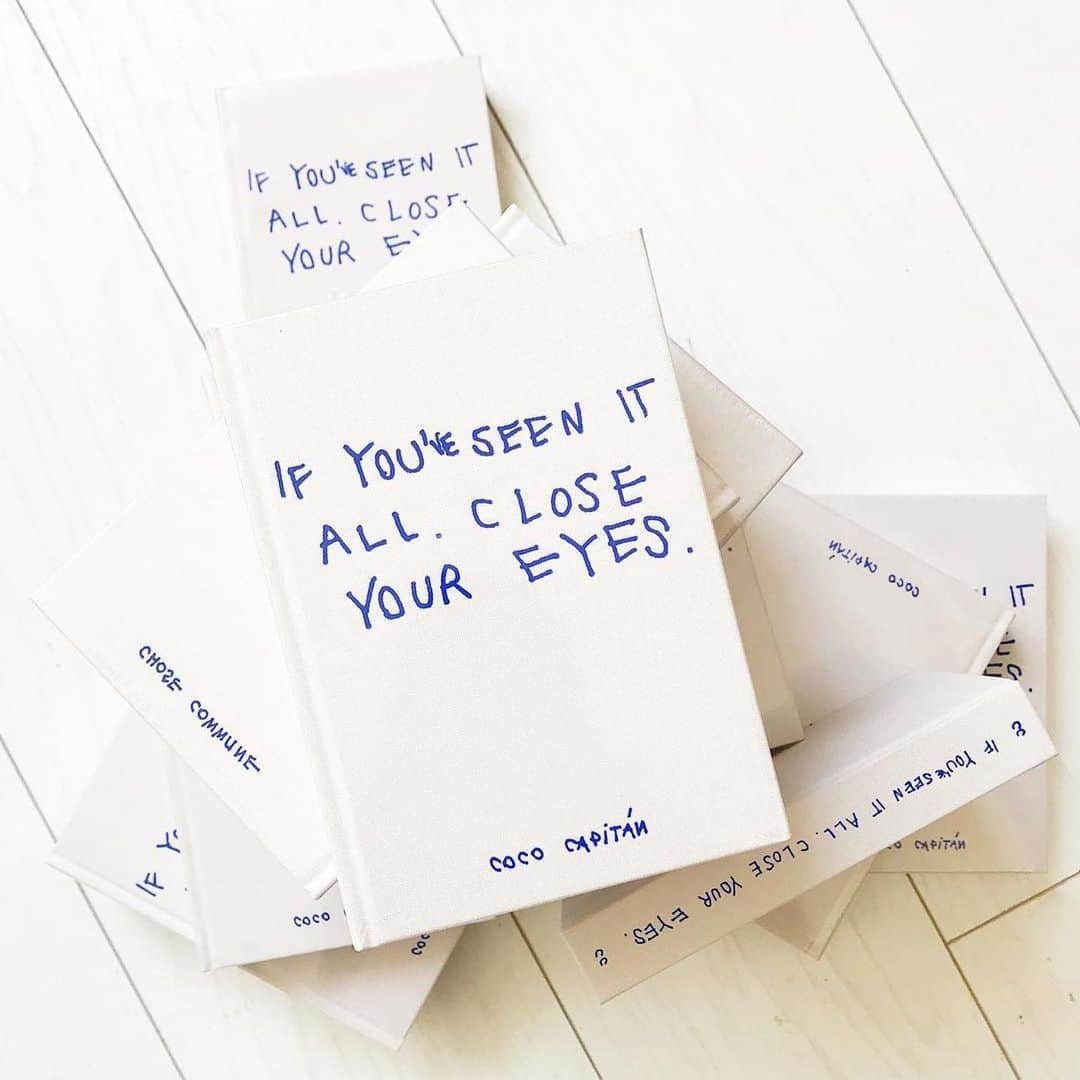 IF YOU'VE SEEN IT
ALL. CLOSE
YOUR
IF YOU'VE SEEN IT
ALL. CLOSE
YOUR EYES.
COCO CAPITÁN
COCO CAPITÁN
CHOSE COMMUNE
IF YOU'VE SEEN IT ALL. CLOSE YOUR EYES.
IT
IF
COCO
CAPITÁN